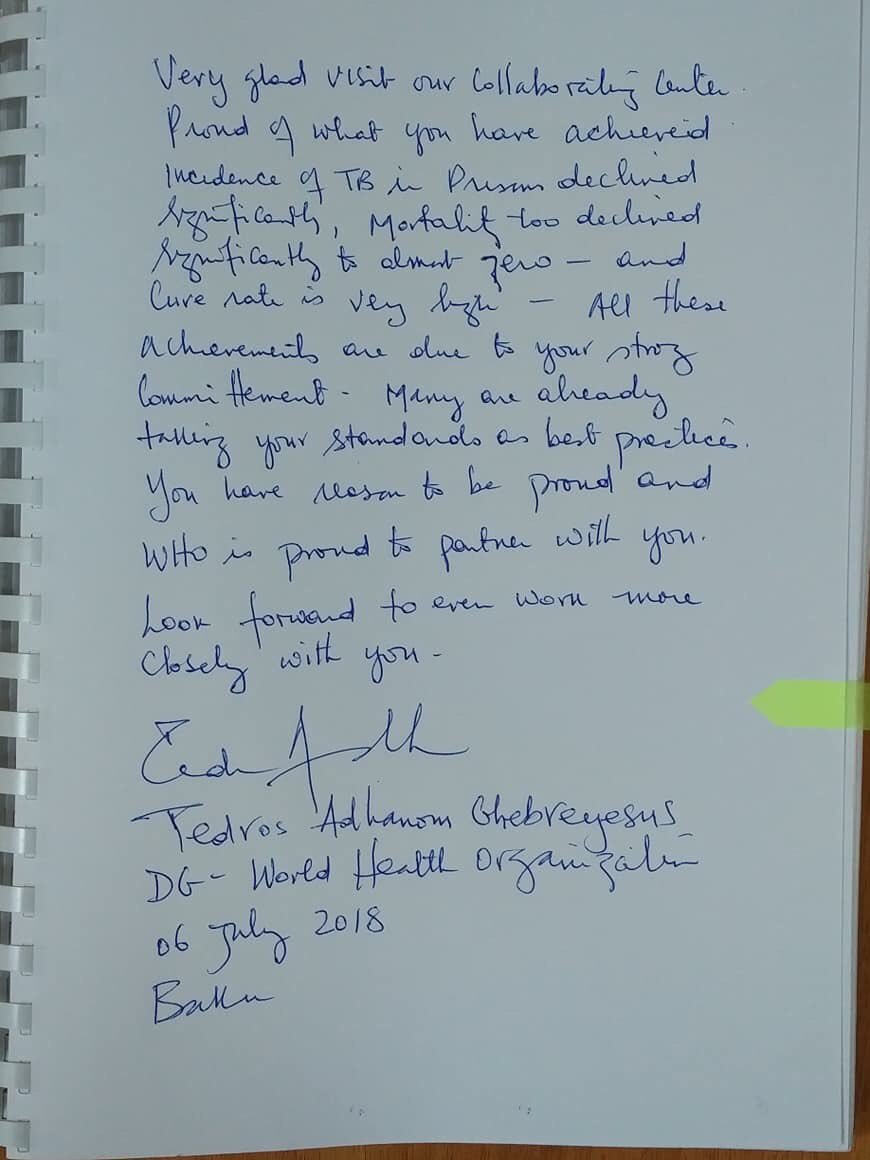 Very glad visit our Collaborating Center.
Proud of what you have achieveid
Incidence of TB in Prisons declined
significantly, Mortality too declined
significantly to almost zero - and
Cure rate is very high - All these
achievements are due to your strong
Committement - Many are already
taking your standards as best practices.
You have reason to be proud and
WHO is proud to partner with you.
Look forward to even work more
closely with you -
Tedros Adhanom Ghebreyesus
DG - World Health Organization
06 July 2018
Baku